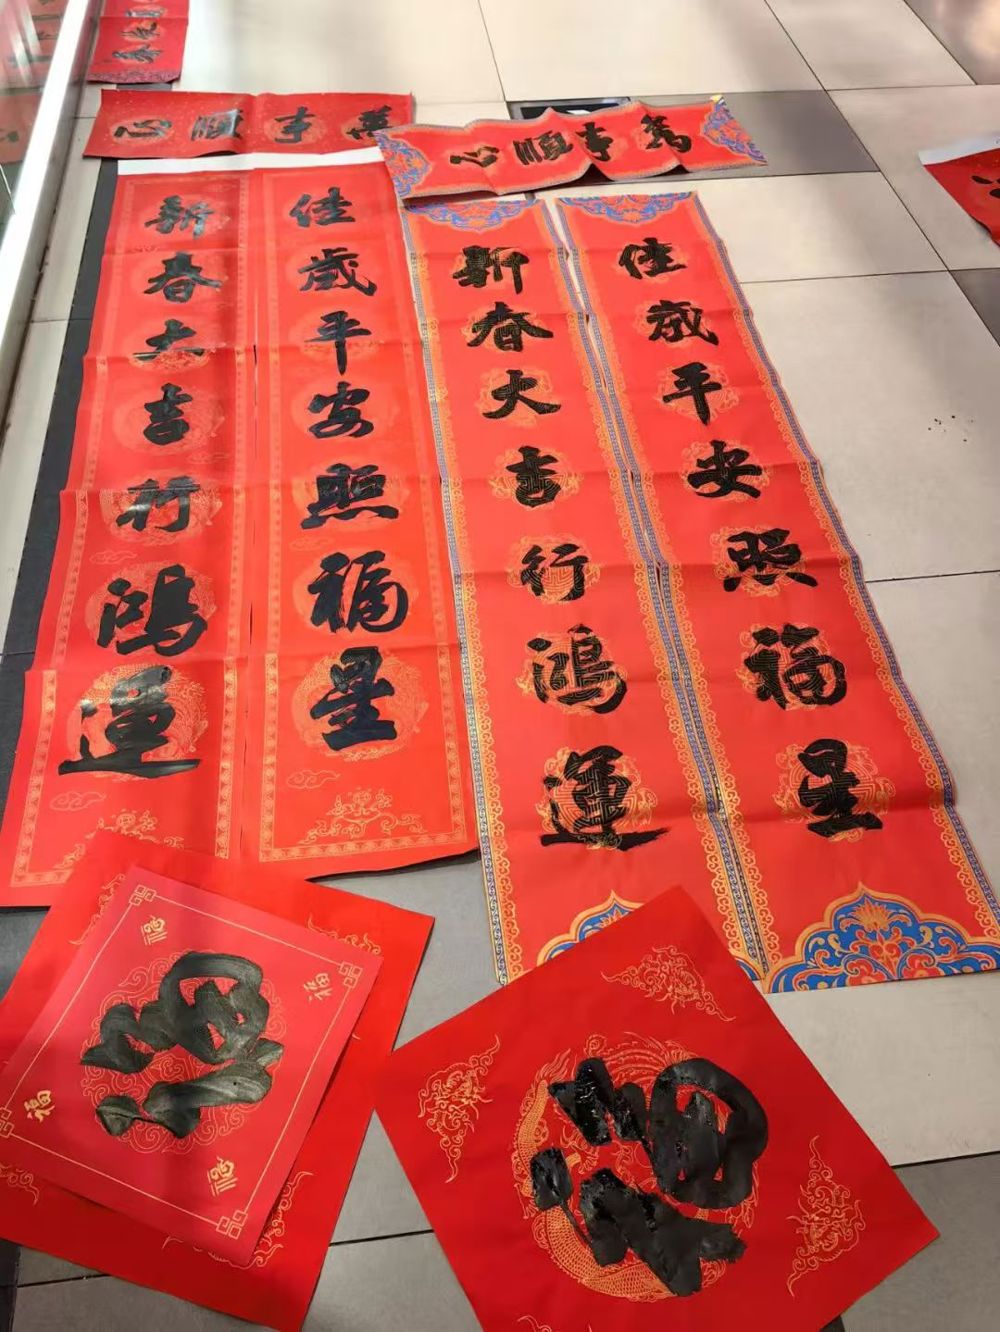 心順事萬
心順事萬
新春大吉行鴻運
佳歲平安照福星
新春大吉行鴻運
佳歲平安照福星
福
福